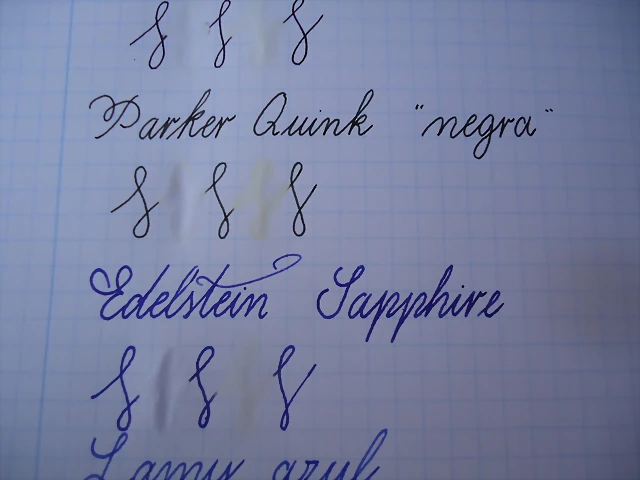 Parker Quink "negra"
Edelstein Sapphire
Lamy azul